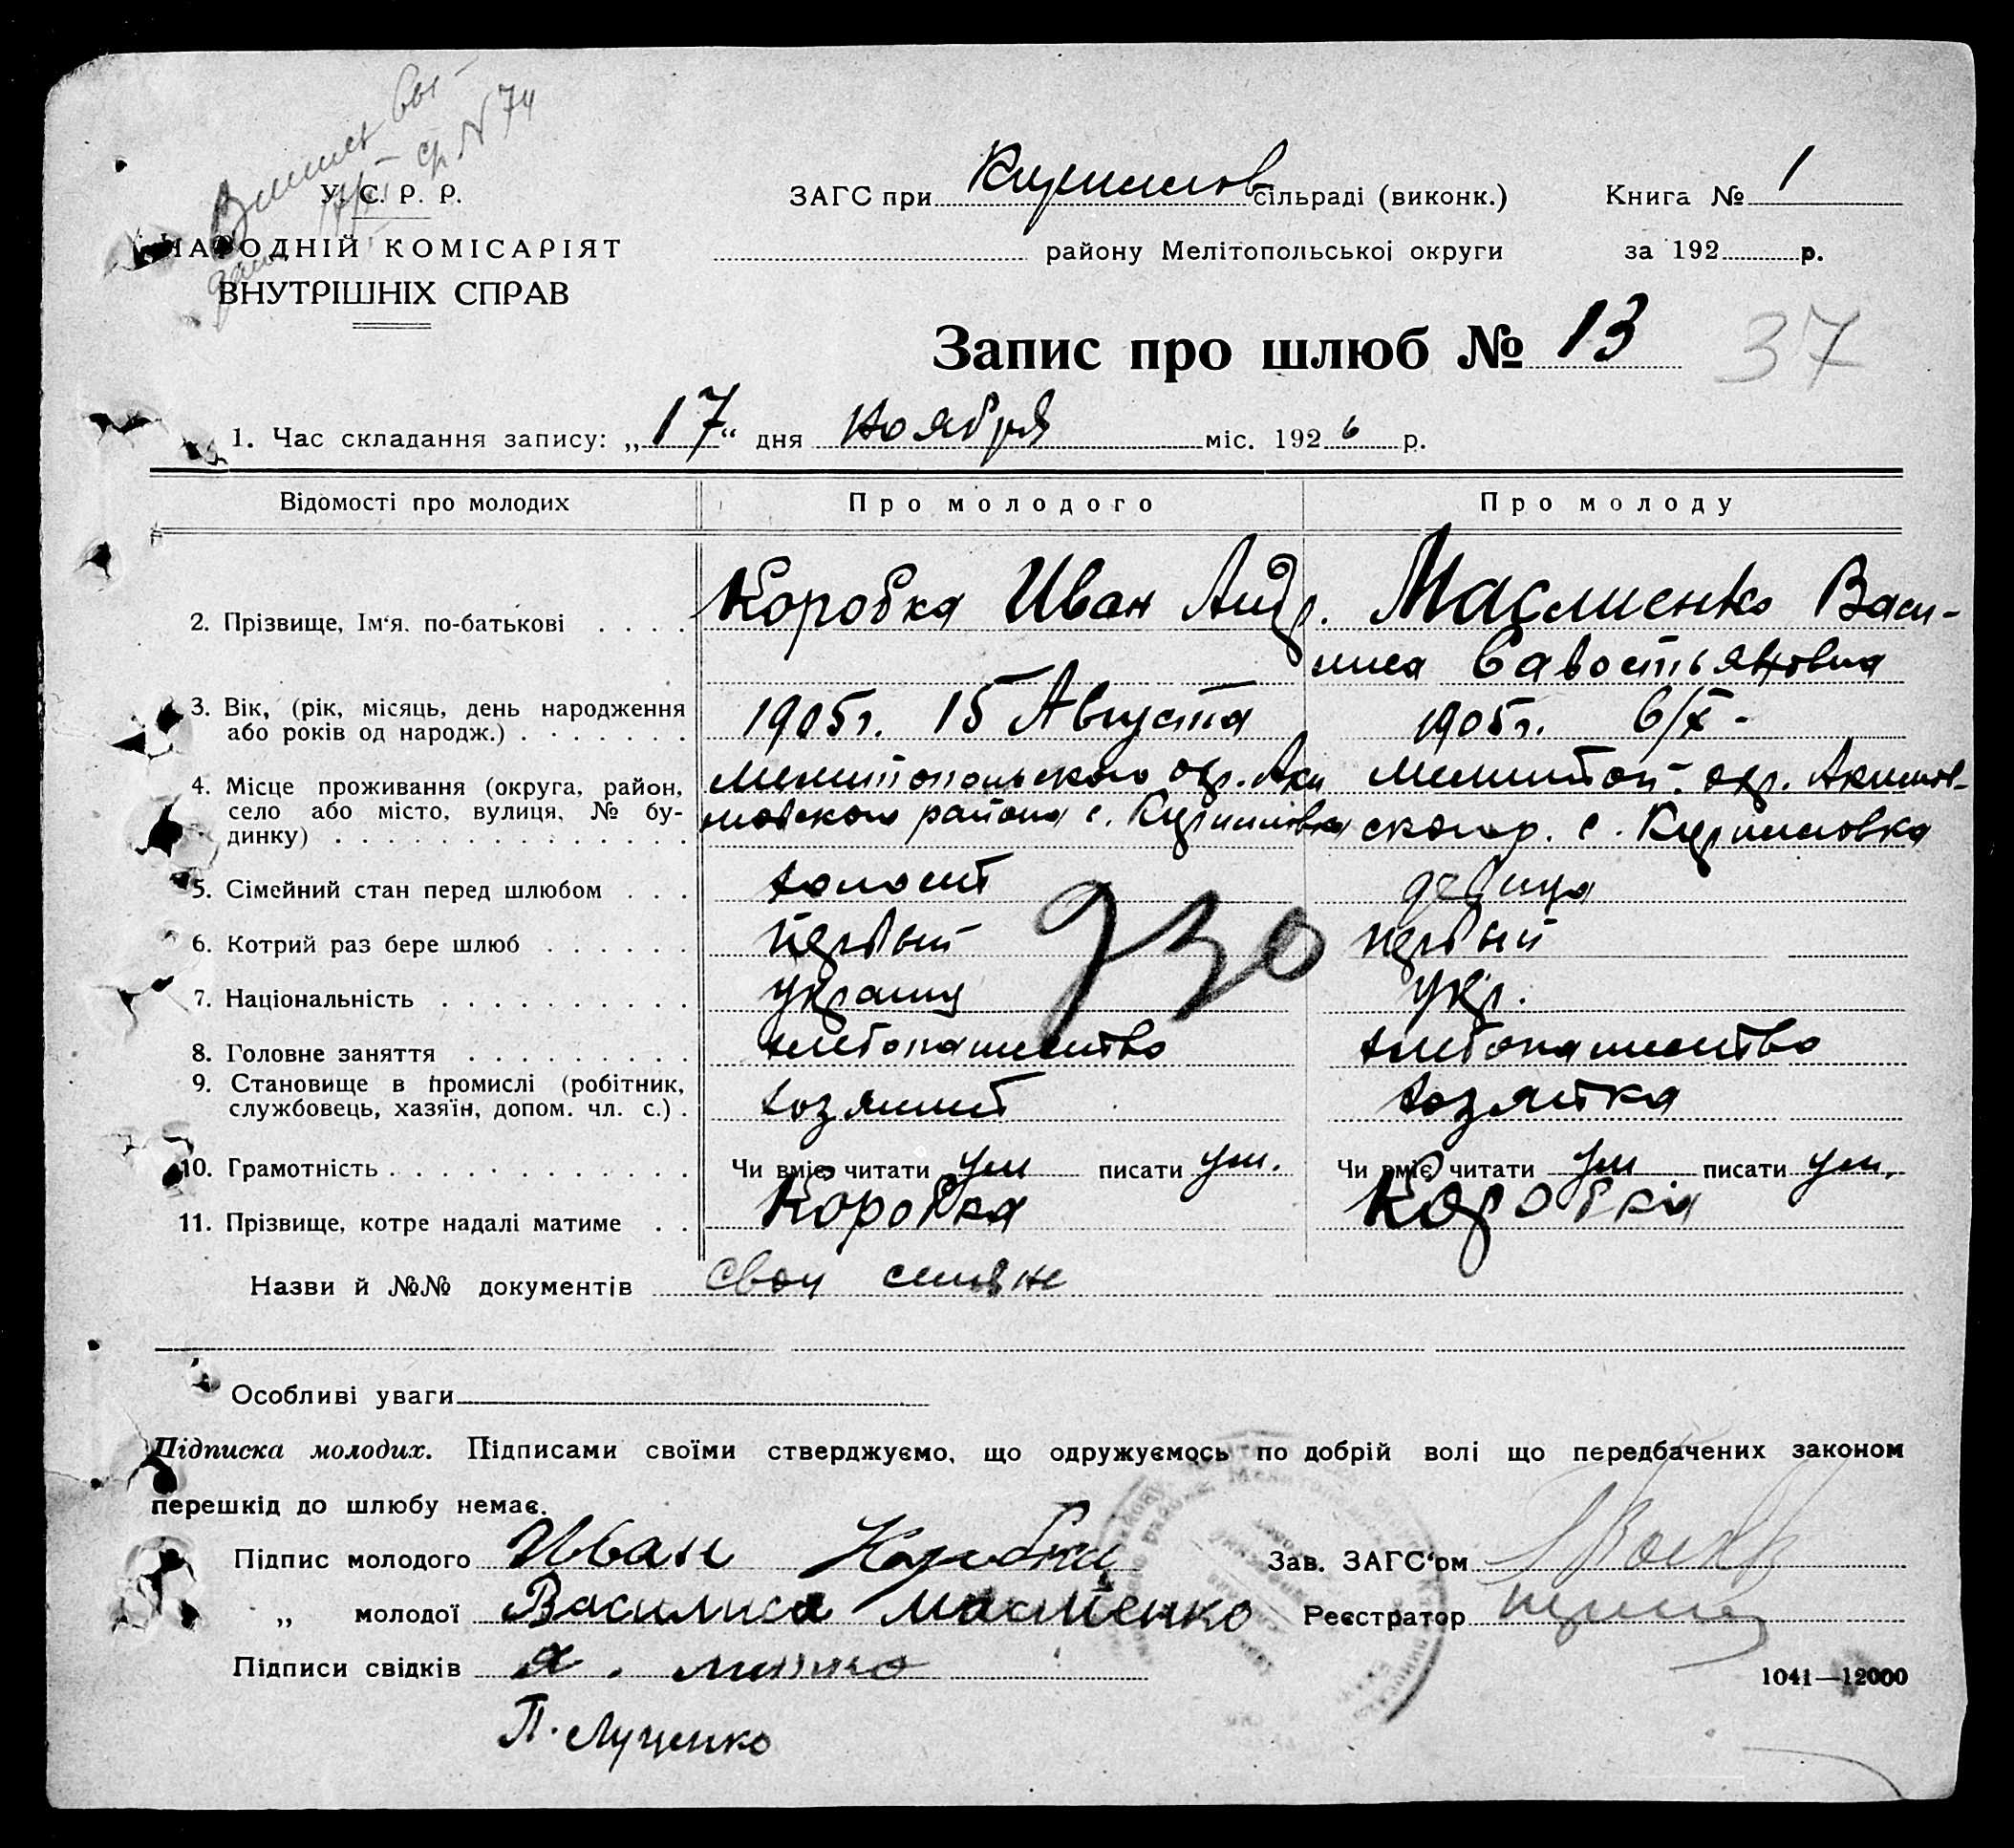 У. С. Р. Р.
НАРОДНІЙ КОМІСАРІЯТ
ВНУТРІШНІХ СПРАВ
ЗАГС при Кирилов сільраді (виконк.) Книга № 1
району Мелітопольської округи за 192 р.
Запис про шлюб № 13 37
1. Час складання запису: „17“ дня Ноября міс. 1926 р.
Відомості про молодих Про молодого Про молоду
2. Прізвище, Ім'я, по-батькові Коробка Иван Андр. Маслиенко Васи-
лиса Савостьяновна
3. Вік, (рік, місяць, день народження
або років од народж.) 1905г. 15 Августа 1905г. 6/X-
4. Місце проживання (округа, район,
село або місто, вулиця, № бу-
динку)
Мелитопольского окр. Аки
мовского района с. Кирилловка
Мелитоп. окр. Акимов-
ского р. с. Кирилловка
5. Сімейний стан перед шлюбом холост девица
6. Котрий раз бере шлюб первый первый
930
7. Національність украинц укр.
8. Головне заняття хлебопашество хлебопашество
9. Становище в промислі (робітник,
службовець, хазяїн, допом. чл. с.) хозяин хозяйка
10. Грамотність Чи вміє читати ум писати ум. Чи вміє читати ум писати ум.
11. Прізвище, котре надалі матиме Коробка Коробка
Назви й №№ документів
Особливі уваги
Підписка молодих. Підписами своїми стверджуємо, що одружуємось по добрій волі що передбачених законом
перешкід до шлюбу немає.
Підпис молодого Иван Коробка Зав. ЗАГС'ом
„ молодої Василиса Маслиенко Реєстратор
Підписи свідків
1041—12000
П. Луценко